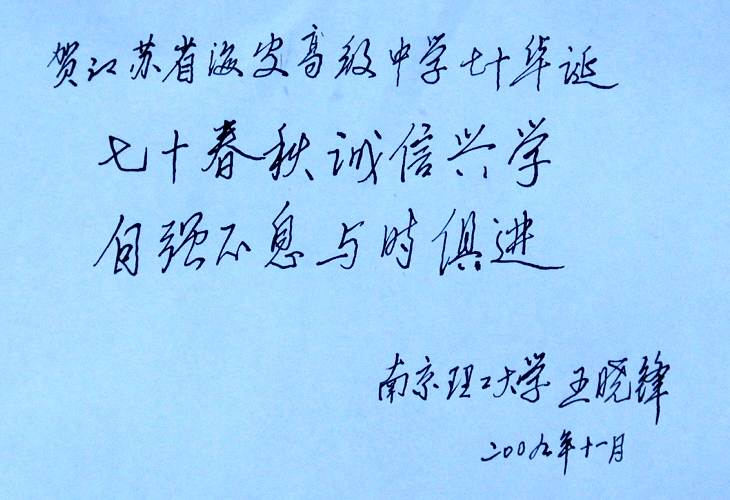 贺江苏省海安高级中学七十华诞
七十春秋诚信兴学
自强不息与时俱进
南京理工大学 王晓锋
二〇〇九年十一月